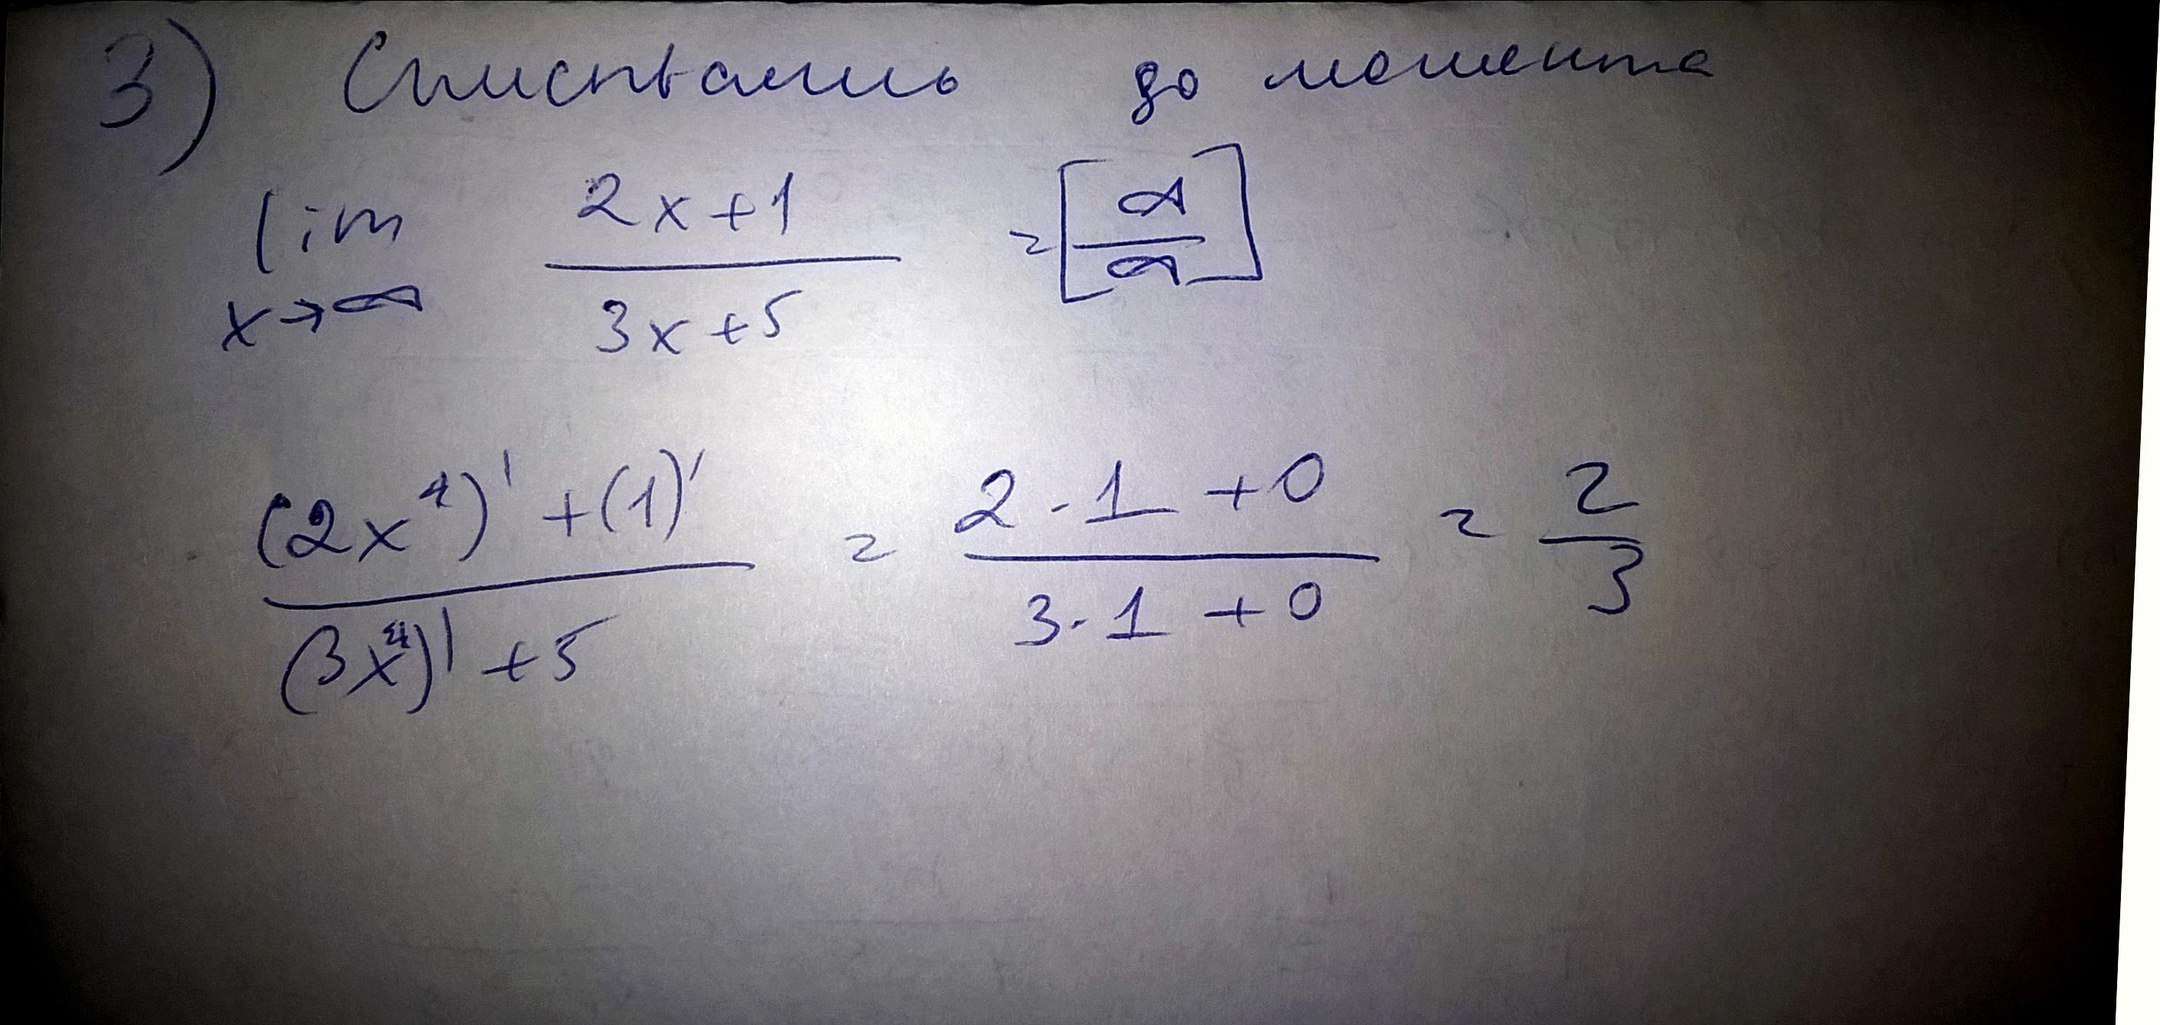 3) Списывать до момента
lim x→∞ (2x+1)/(3x+5) = [∞/∞]
((2x⁴)' + (1)')/((3x⁴)' + 5) = (2·1 + 0)/(3·1 + 0) = 2/3